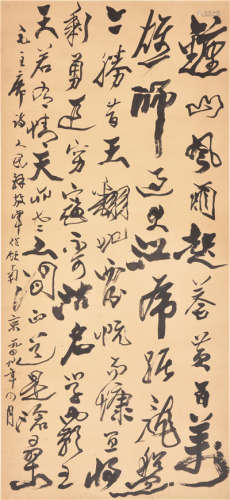 钟山风雨起苍黄百万
雄师过大江虎踞龙盘
今胜昔天翻地覆慨而慷宜将
剩勇追穷寇不可沽名学霸王
天若有情天亦老人间正道是沧桑
毛主席诗人民解放军占领南京